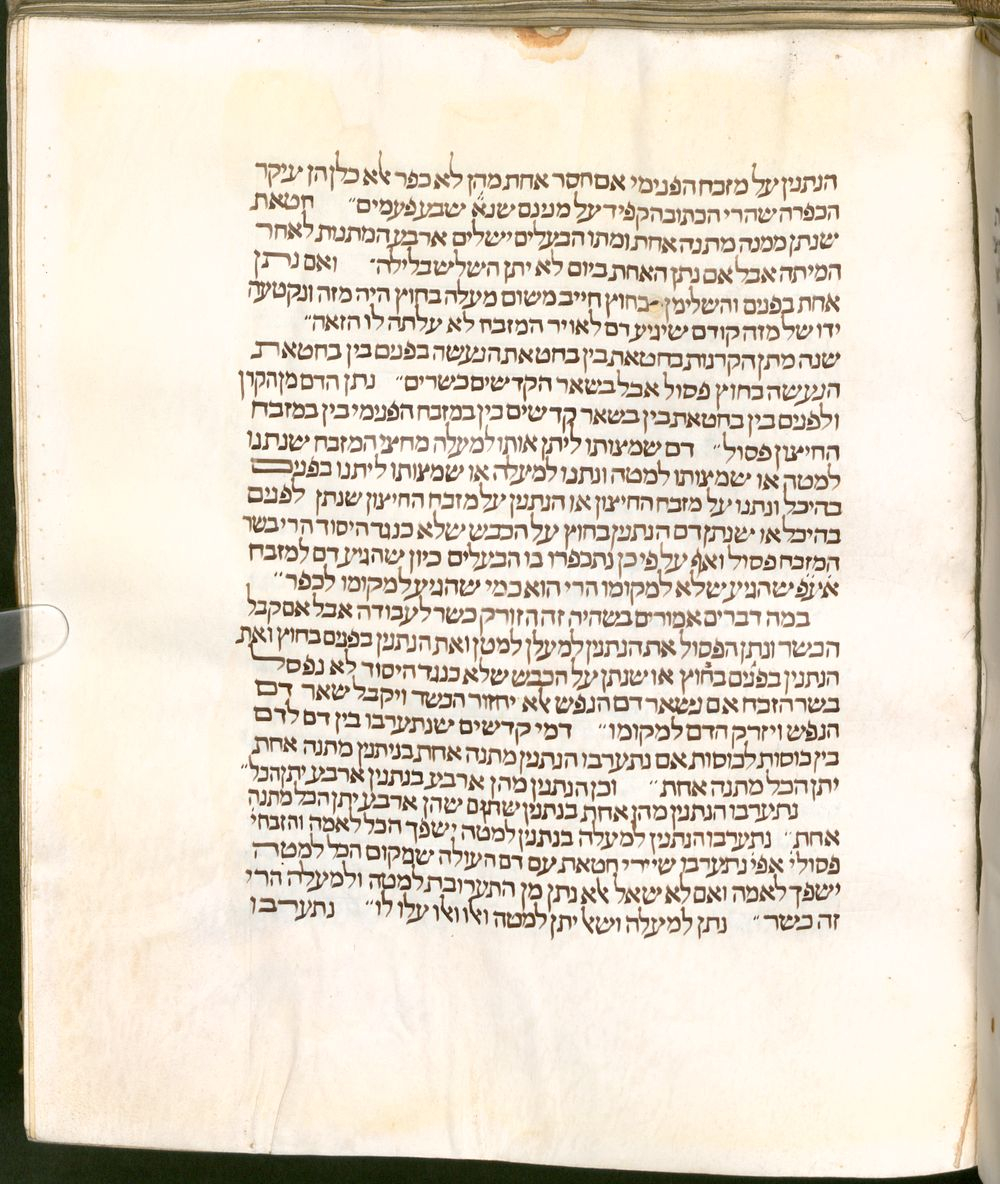 הנתנין על מזבח הפנימי אם חסר אחת מהן לא כפר אלא כלן הן עיקר
הכפרה שהרי הכתוב הקפיד על מנינם שנא׳ שבע פעמים״ חטאת
שנתן ממנה מתנה אחת ומתו הבעלים ישלים ארבע המתנות לאחר
המיתה אבל אם נתן האחת ביום לא יתן השלש בלילה״ ואם נתן
אחת בפנים והשלימן בחוץ חייב משום מעלה בחוץ היה מזה ונקטעה
ידו של מזה קודם שיגיע דם לאויר המזבח לא עלתה לו הזאה״
שנה מתן הקרנות בחטאת בין בחטאת הנעשה בפנים בין בחטאת
הנעשה בחוץ פסול אבל בשאר הקדשים כשרים״ נתן הדם מן הקרן
ולפנים בין בחטאת בין בשאר קדשים בין במזבח הפנימי בין במזבח
החיצון פסול״ דם שמצותו ליתן אותו למעלה מחצי המזבח שנתנו
למטה או שמצותו למטה ונתנו למעלה או שמצותו ליתנו בפנים
בהיכל ונתנו על מזבח החיצון או הנתנין על מזבח החיצון שנתן לפנים
בהיכל או שנתן דם הנתנין בחוץ על הכבש שלא כנגד היסוד הרי בשר
המזבח פסול ואף על פי כן נתכפרו בו הבעלים כיון שהגיע דם למזבח
אע״פ שהגיע שלא למקומו הרי הוא כמי שהגיע למקומו לכפר״
במה דברים אמורים בשהיה זה הזורק כשר לעבודה אבל אם קבל
הכשר ונתן הפסול את הנתנין למעלן למטן ואת הנתנין בפנים בחוץ ואת
הנתנין בפנים בחוץ או שנתן על הכבש שלא כנגד היסוד לא נפסל
בשר הזבח אם נשאר דם הנפש אלא יחזור הכשר ויקבל שאר דם
הנפש ויזרק הדם למקומו״ דמי קדשים שנתערבו בין דם לדם
בין כוסות לכוסות אם נתערבו הנתנין מתנה אחת בניתנין מתנה אחת
יתן הכל מתנה אחת״ וכן הנתנין מהן ארבע בנתנין ארבע יתן הכל״
נתערבו הנתנין מהן אחת בנתנין שתים שהן ארבע יתן הכל מתנה
אחת״ נתערבו הנתנין למעלה בנתנין למטה ישפך הכל לאמה והזבחי׳
פסולי׳ אפי׳ נתערבו שיירי חטאת עם דם העולה שמקום הכל למטה
ישפך לאמה ואם לא שאל אלא נתן מן התערובת למטה ולמעלה הרי
זה כשר״ נתן למעלה ושאל יתן למטה ואלו ואלו עלו לו״ נתערבו